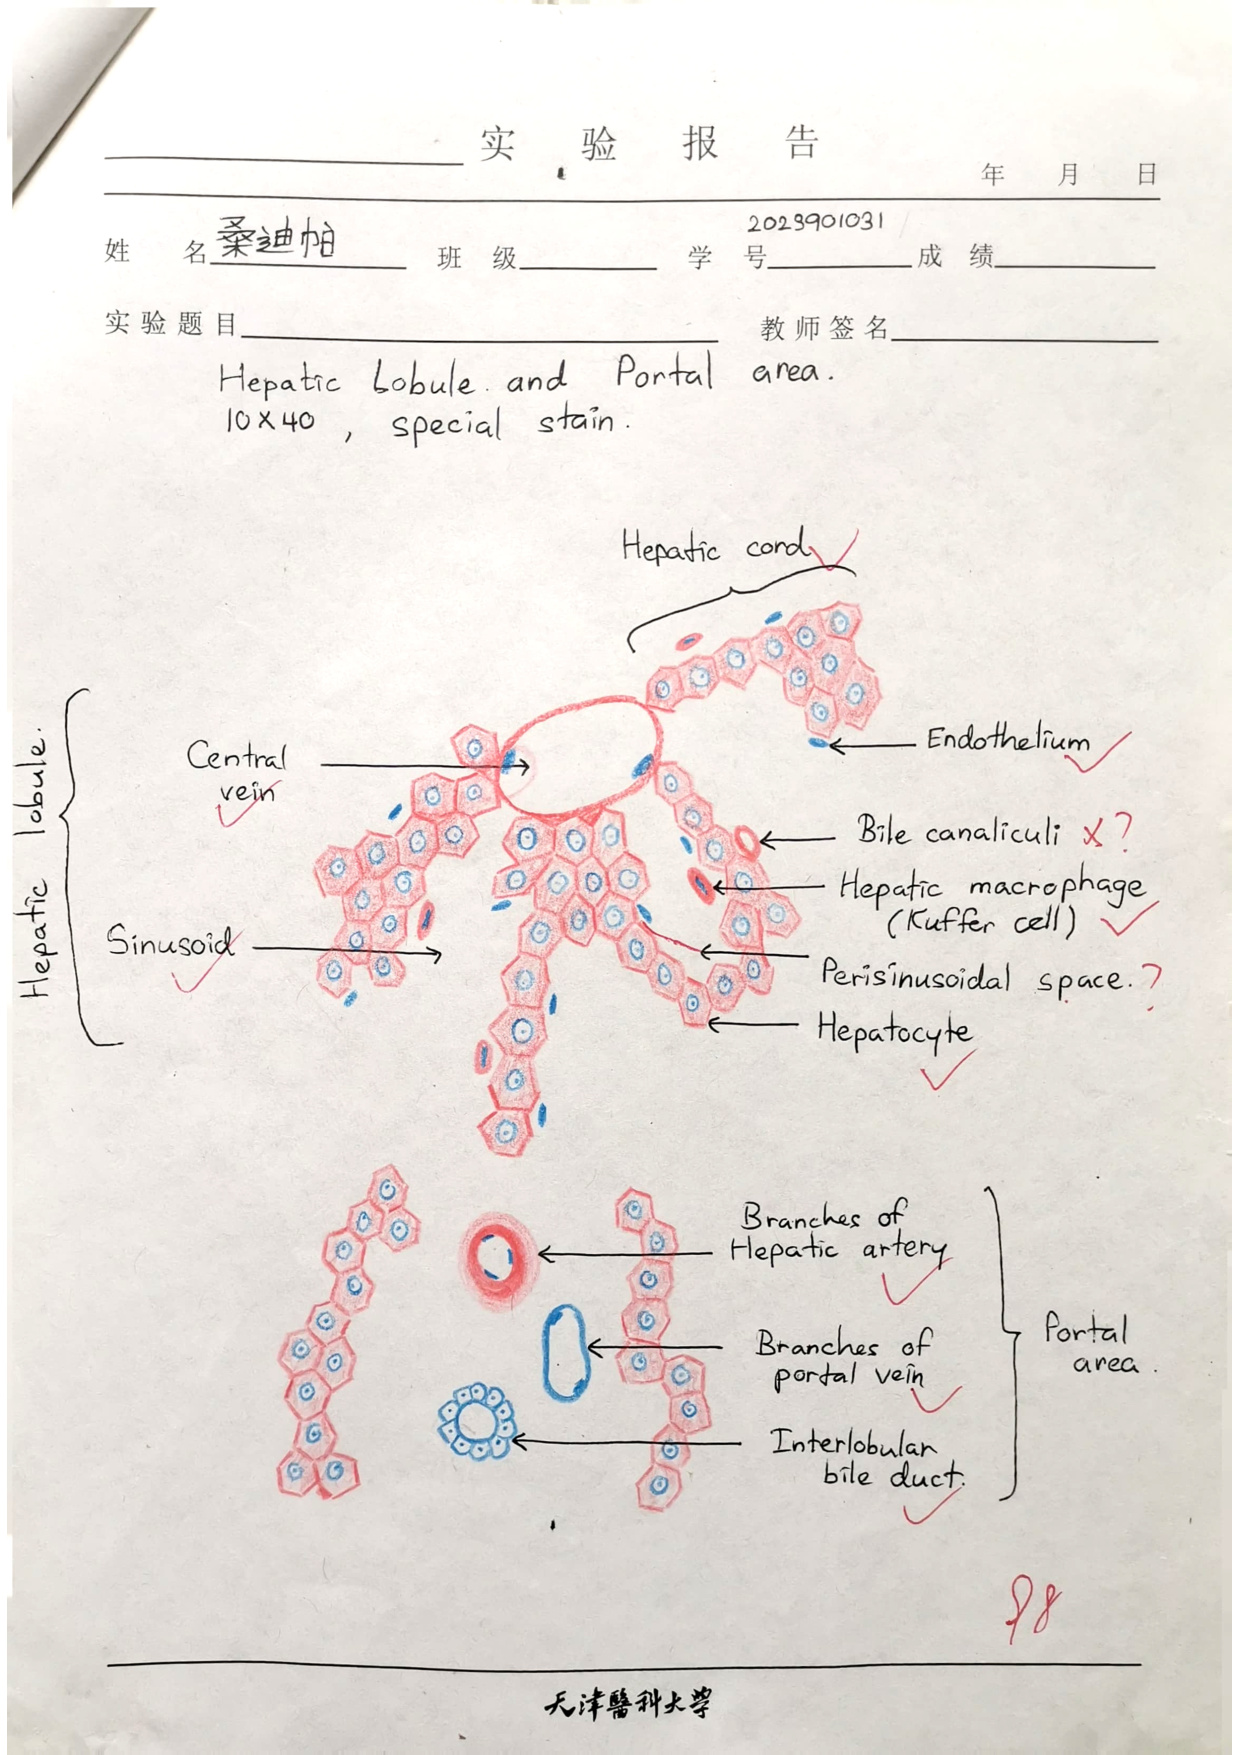 实 验 报 告
年 月 日
2023901031
姓 名 桑迪帕 班 级 学 号 成 绩
实验题目 教师签名
Hepatic Lobule. and Portal area.
10×40, special stain.
Hepatic cord
Endothelium
Central
vein
Bile canaliculi x?
Hepatic macrophage
(Kuffer cell)
Hepatic lobule.
Sinusoid
Perisinusoidal space. ?
Hepatocyte
Branches of
Hepatic artery
Branches of
portal vein
Portal
area.
Interlobular
bile duct.
98
天津醫科大学